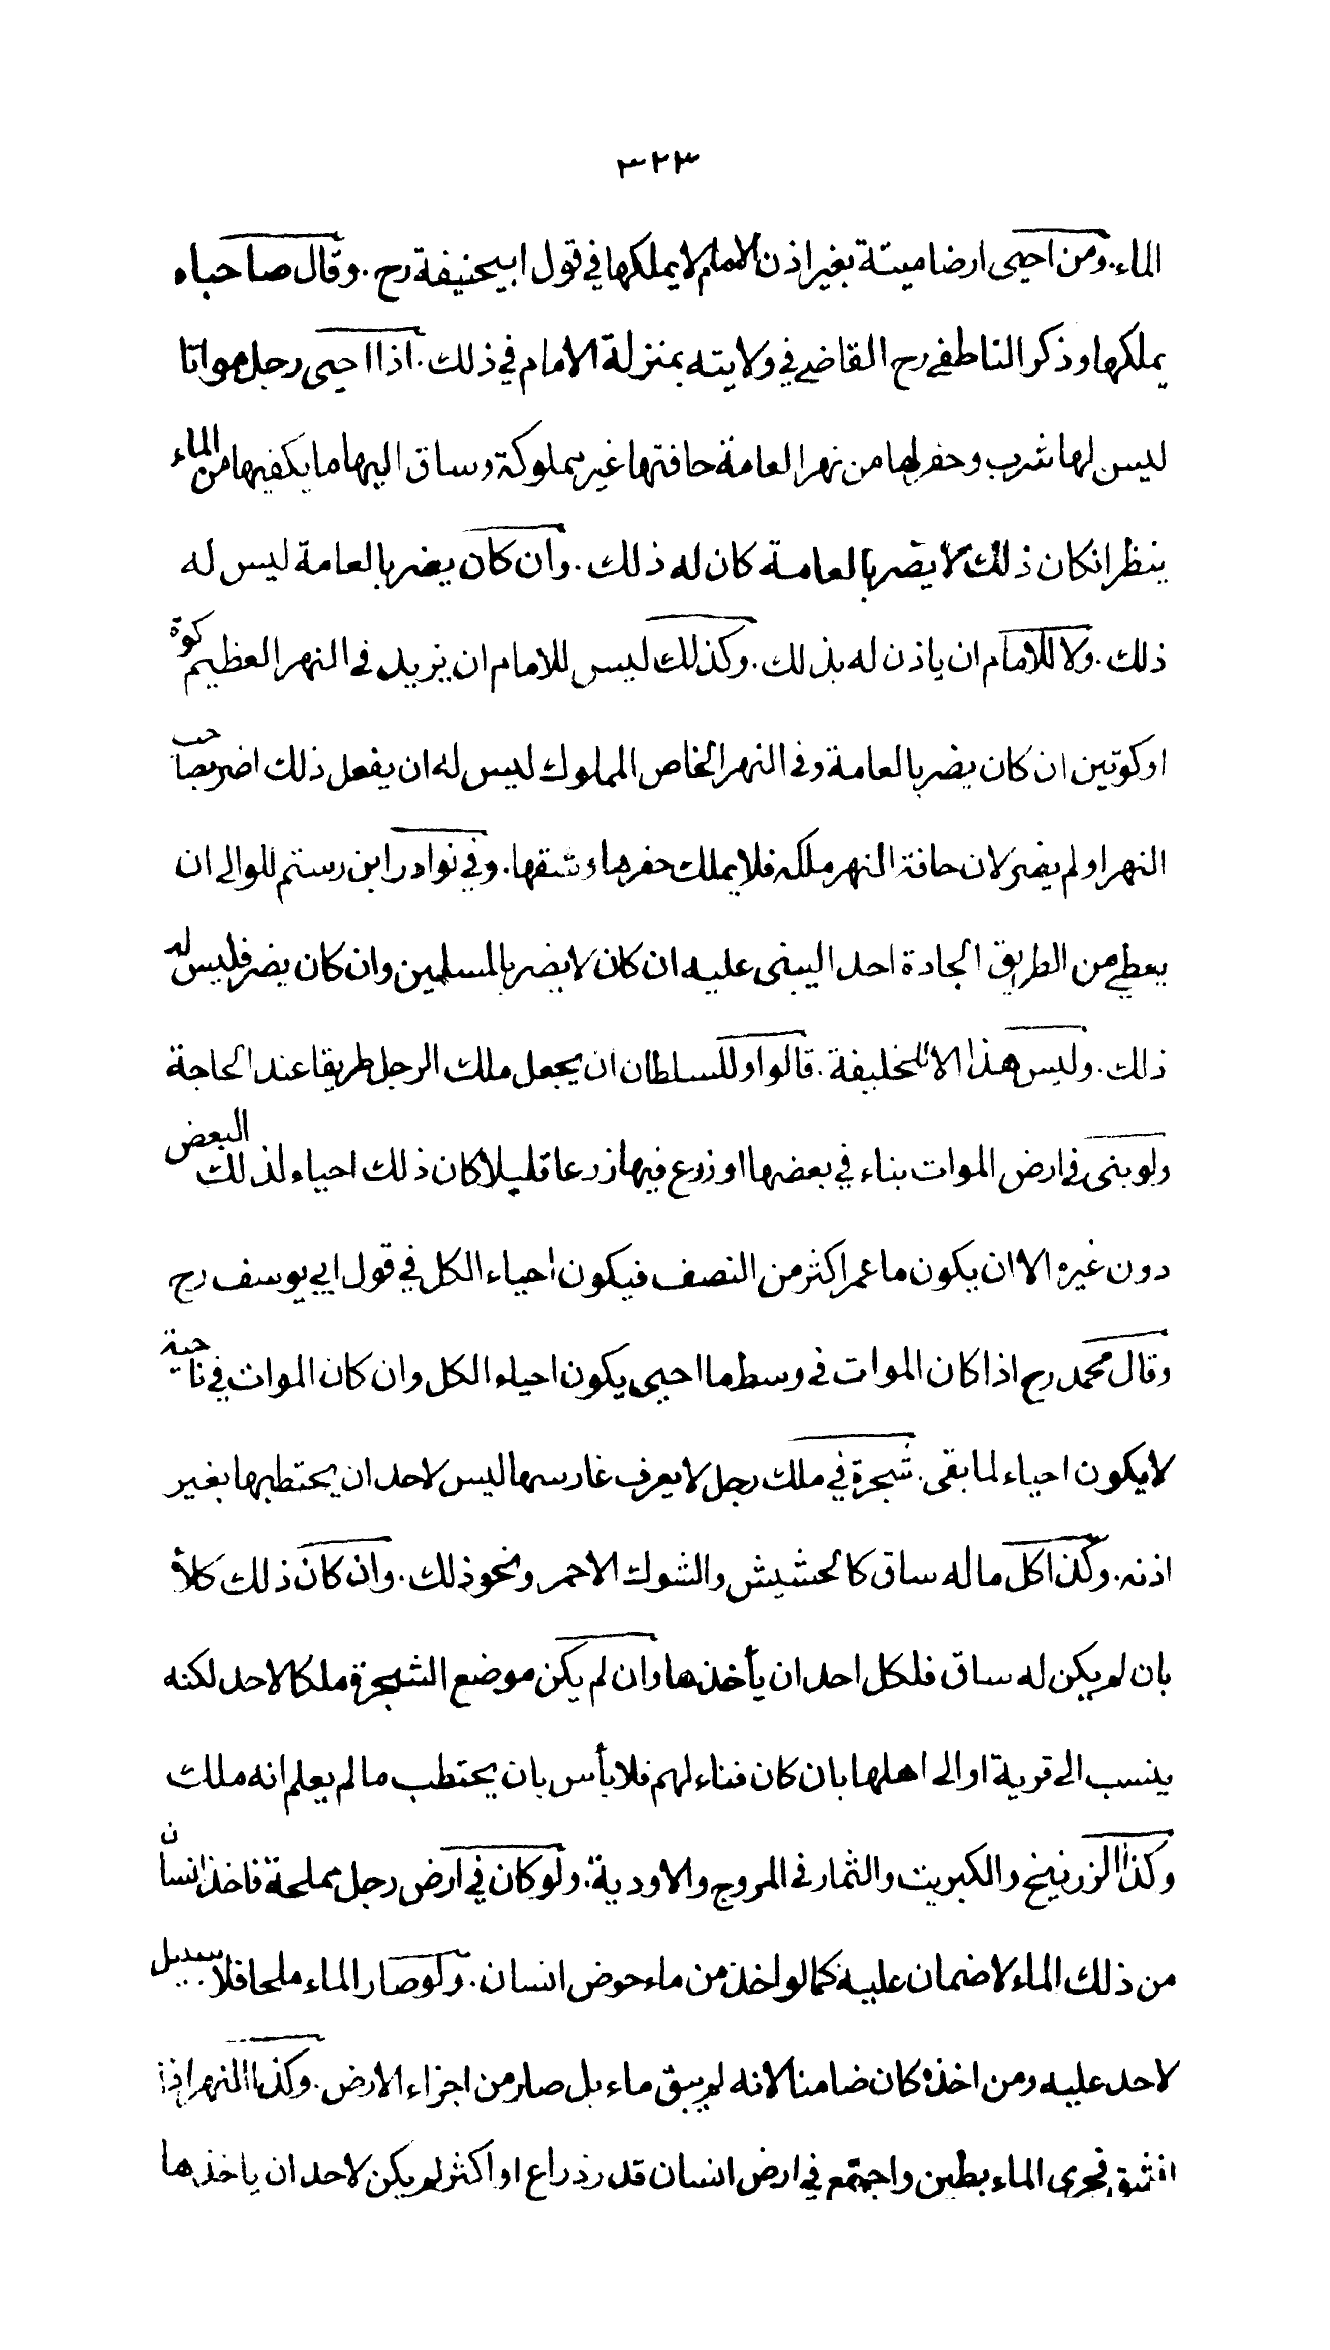 ٣٢٣
الماء. ومن احيى ارضا ميتة بغير اذن الامام لا يملكها في قول ابيحنيفة رح. وقال صاحباه
يملكها وذكر الناطفي رح القاضي في ولايته بمنزلة الامام في ذلك. اذا احيى رجل مواتا
ليس لها شرب وحفر لها من نهر العامة حافتها غير مملوكة وساق اليها ما يكفيها من الماء
ينظر انكان ذلك لا يضر بالعامة كان له ذلك. وان كان يضر بالعامة ليس له
ذلك. ولا للامام ان ياذن له بذلك. وكذلك ليس للامام ان يزيد في النهر العظيم كوة
او كوتين ان كان يضر بالعامة وفي النهر الخاص المملوك ليس له ان يفعل ذلك اضر بصاحب
النهر او لم يضر لان حافة النهر ملكه فلا يملك حفرها وشقها. وفي نوادر ابن رستم للوالي ان
يعطي من الطريق الجادة احد اليبنى عليه ان كان لا يضر بالمسلمين وان كان يضر فليس له
ذلك. وليس هذا الا للخليفة. قالوا وللسلطان ان يجعل ملك الرجل طريقا عند الحاجة
ولو بنى في ارض الموات بناء في بعضها او زرع فيها زرعا قليلا كان ذلك احياء لذلك البعض
دون غيره الا ان يكون ما عمر اكثر من النصف فيكون احياء الكل في قول ابي يوسف رح
وقال محمد رح اذا كان الموات في وسط ما احيى يكون احياء الكل وان كان الموات في ناحية
لا يكون احياء لما بقى. شجرة في ملك رجل لا يعرف غارسها ليس لاحد ان يحتطبها بغير
اذنه. وكذا كل ما له ساق كالحشيش والشوك الاحمر ونحو ذلك. وان كان ذلك كلأ
بان لم يكن له ساق فلكل احد ان يأخذها وان لم يكن موضع الشجرة ملكا لاحد لكنه
ينسب الى قرية او الى اهلها بان كان فناء لهم فلا بأس بان يحتطب ما لم يعلم انه ملك
وكذا الزرنيخ والكبريت والثمار في المروج والاودية. ولو كان في ارض رجل مملحة فاخذ انسان
من ذلك الماء لا ضمان عليه كما لو اخذ من ماء حوض انسان. ولو صار الماء ملحا فلا سبيل
لاحد عليه ومن اخذه كان ضامنا لانه لم يبق ماء بل صار من اجزاء الارض. وكذا النهر اذا
انشق فجرى الماء بطين واجتمع في ارض انسان قدر ذراع او اكثر لم يكن لاحد ان ياخذها